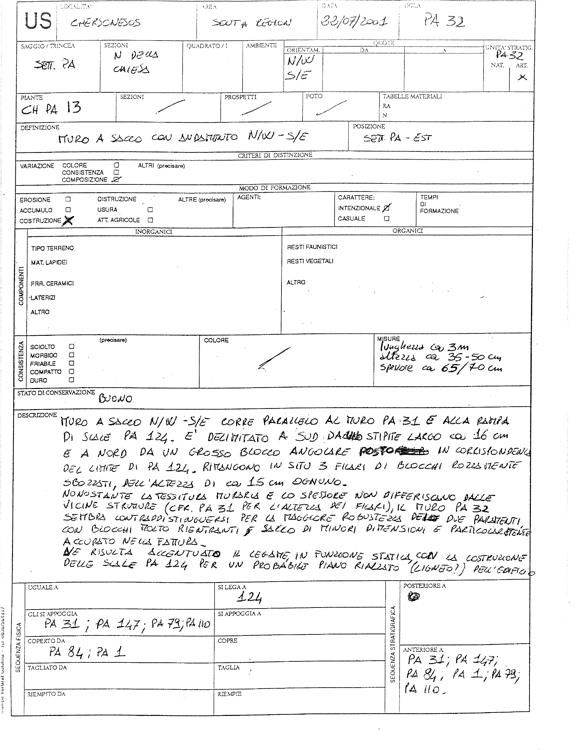 US
LOCALITA'
CHERSONESOS
AREA
SOUTH REGION
DATA
22/07/2001
SIGLA
PA 32
SAGGIO / TRINCEA
SETT. PA
SEZIONI
N DELLA CHIESA
QUADRATO / I
AMBIENTE
QUOTE
ORIENTAM.
DA
A
N/W
S/E
UNITA' STRATIG.
PA 32
NAT. ART.
X
PIANTE
CH PA 13
SEZIONI
PROSPETTI
FOTO
TABELLE MATERIALI
RA
N
DEFINIZIONE
MURO A SACCO CON ANDAMENTO N/W - S/E
POSIZIONE
SETT. PA - EST
CRITERI DI DISTINZIONE
VARIAZIONE COLORE ALTRI (precisare)
CONSISTENZA
COMPOSIZIONE
MODO DI FORMAZIONE
EROSIONE DISTRUZIONE ALTRE (precisare)
ACCUMULO USURA
COSTRUZIONE X ATT. AGRICOLE
AGENTI:
CARATTERE:
INTENZIONALE
CASUALE
TEMPI
DI
FORMAZIONE
COMPONENTI
INORGANICI
TIPO TERRENO
MAT. LAPIDEI
FRR. CERAMICI
LATERIZI
ALTRO
ORGANICI
RESTI FAUNISTICI
RESTI VEGETALI
ALTRO
CONSISTENZA
(precisare)
SCIOLTO
MORBIDO
FRIABILE
COMPATTO
DURO
COLORE
MISURE
lunghezza ca 3m
altezza ca 35-50 cm
spessore ca 65/70 cm
STATO DI CONSERVAZIONE
BUONO
DESCRIZIONE
MURO A SACCO N/W - S/E CORRE PARALLELO AL MURO PA 31 E ALLA RAMPA
DI SCALE PA 124. E' DELIMITATO A SUD DA STIPITE LARGO ca 16 cm
E A NORD DA UN GROSSO BLOCCO ANGOLARE POSTO IN CORRISPONDENZA
DEL LIMITE DI PA 124. RIMANGONO IN SITU 3 FILARI DI BLOCCHI ROZZAMENTE
SBOZZATI, DELL'ALTEZZA DI ca 15 cm OGNUNO.
NONOSTANTE LA TESSITURA MURARIA E LO SPESSORE NON DIFFERISCANO DALLE
VICINE STRUTTURE (CFR. PA 31 PER L'ALTEZZA DEI FILARI), IL MURO PA 32
SEMBRA CONTRADDISTINGUERSI PER LA MAGGIORE ROBUSTEZZA DEI DUE PARAMENTI,
CON BLOCCHI MOLTO RIENTRANTI E SACCO DI MINORI DIMENSIONI E PARTICOLARMENTE
ACCURATO NELLA FATTURA.
NE RISULTA ACCENTUATO IL LEGAME, IN FUNZIONE STATICA, CON LA COSTRUZIONE
DELLE SCALE PA 124 PER UN PROBABILE PIANO RIALZATO (LIGNEO?) DELL'EDIFICIO
SEQUENZA FISICA
UGUALE A
SI LEGA A
124
GLI SI APPOGGIA
PA 31; PA 147; PA 79; PA 110
SI APPOGGIA A
COPERTO DA
PA 84; PA 1
COPRE
TAGLIATO DA
TAGLIA
RIEMPITO DA
RIEMPIE
SEQUENZA STRATIGRAFICA
POSTERIORE A
ANTERIORE A
PA 31; PA 147;
PA 84, PA 1; PA 79;
PA 110.